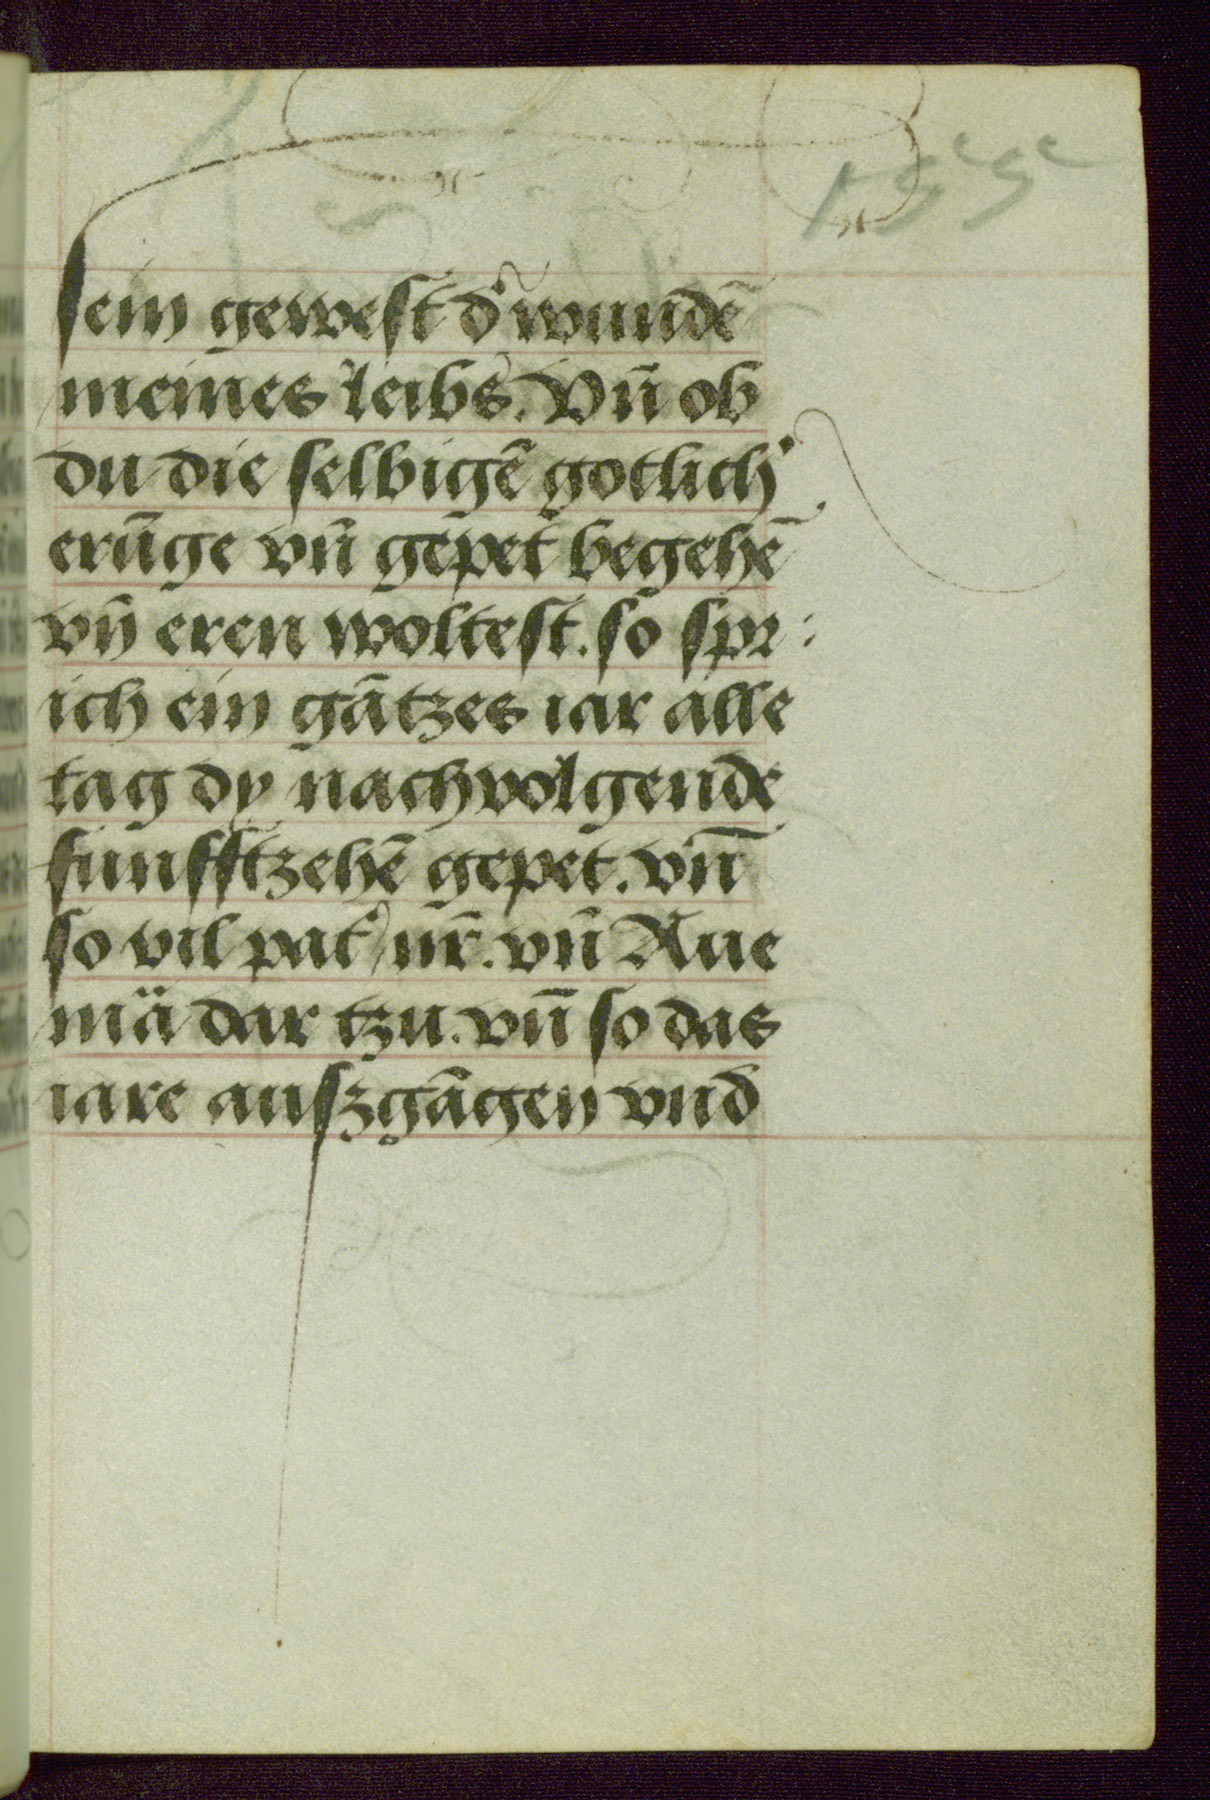 sein gewest d' wundē
meines leibs. Vn̄ ob
du die selbigē gotlich'
erūge vn̄ gepet begehē
vn̄ eren woltest. so spr:
ich ein gātzes iar alle
tag dy nachvolgende
funfftzehē gepet. vn̄
so vil pat' nr̄. vn̄ Aue
mä dar tzu. vn̄ so das
iare auszgāgen vnd